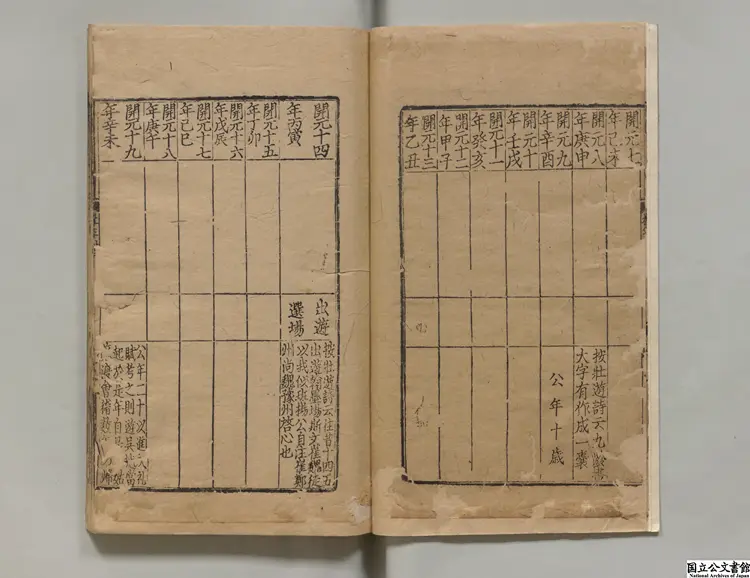 開元七
年己未
開元八
年庚申
開元九
年辛酉
開元十
年壬戌
開元十一
年癸亥
開元十二
年甲子
開元十三
年乙丑
按壯遊詩云九齡書
大字有作成一囊
公年十歲
開元十四
年丙寅
開元十五
年丁卯
開元十六
年戊辰
開元十七
年己巳
開元十八
年庚午
開元十九
年辛未
出遊
選場
按壯遊詩云往昔十四五
出遊翰墨場斯文崔魏徒
以我似班揚公自注崔鄭
州尚魏豫州啓心也
公年二十以進
賦考之則遊吳越當
起於是年自是
国立公文書館
National Archives of Japan